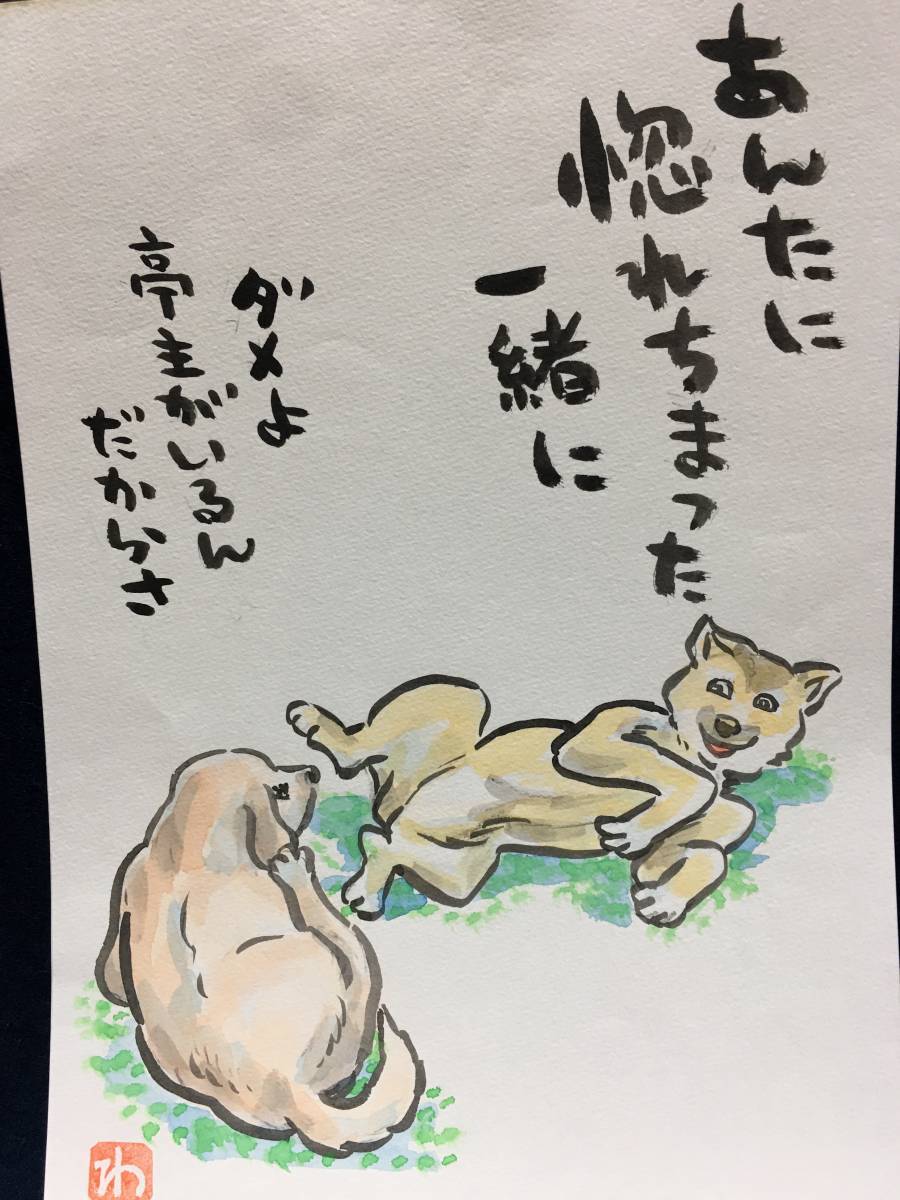 あんたに
惚れちまった
一緒に
ダメよ
亭主がいるん
だからさ
わ